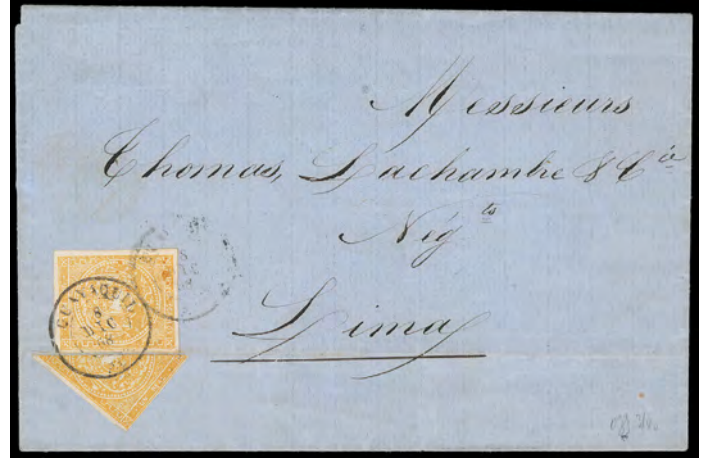 Messieurs
Thomas, Lachambre & Cie
Négts
Lima
GUAYAQUIL
8
DIC
68